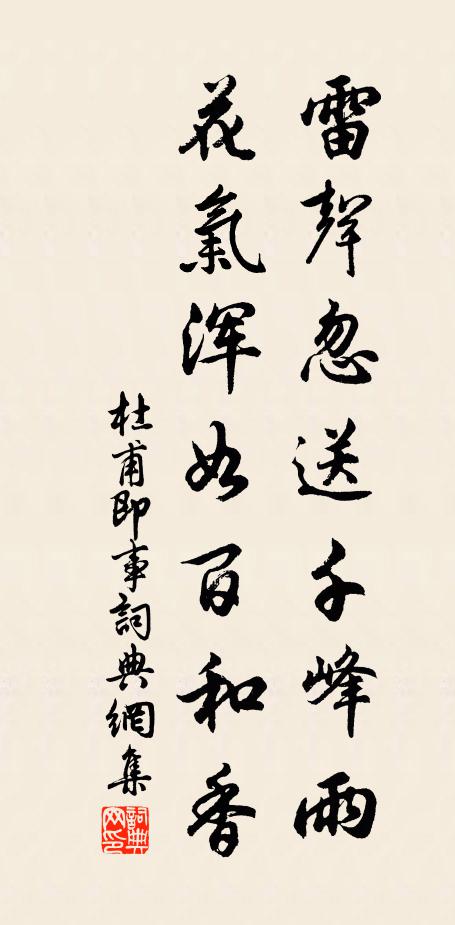 雷聲忽送千峰雨
花氣渾如百和香
杜甫即事詞典網集
詞典網印